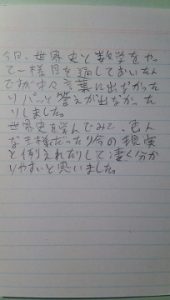 今日、世界史と数学をやっ
て一様目を通しておいたん
ですが中々言葉に出なかった
りパッと答えが出なかった
りしました。
世界史を学んでみて、色ん
な王様だったり今の現実
と例えれたりして凄く分か
りやすいと思いました。